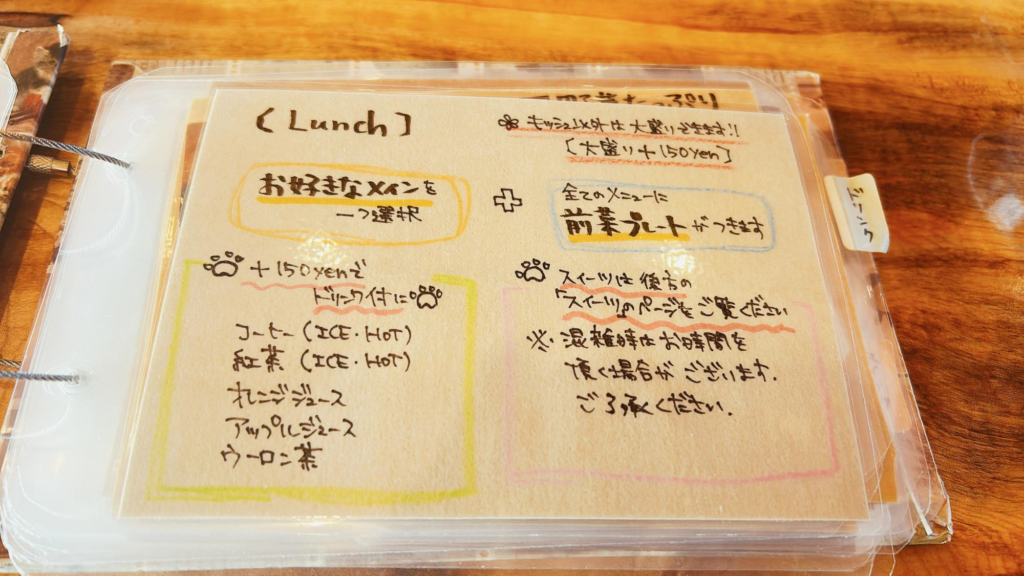 [Lunch]
キッシュ以外は大盛りできます!!
[大盛り+150yen]
お好きなメインを
一つ選択
+
全てのメニューに
前菜プレートがつきます
+150yenで
ドリンク付に
コーヒー(ICE・HOT)
紅茶(ICE・HOT)
オレンジジュース
アップルジュース
ウーロン茶
スイーツは後方の
「スイーツ」のページをご覧ください
※混雑時はお時間を
頂く場合がございます.
ご了承ください.
ドリンク